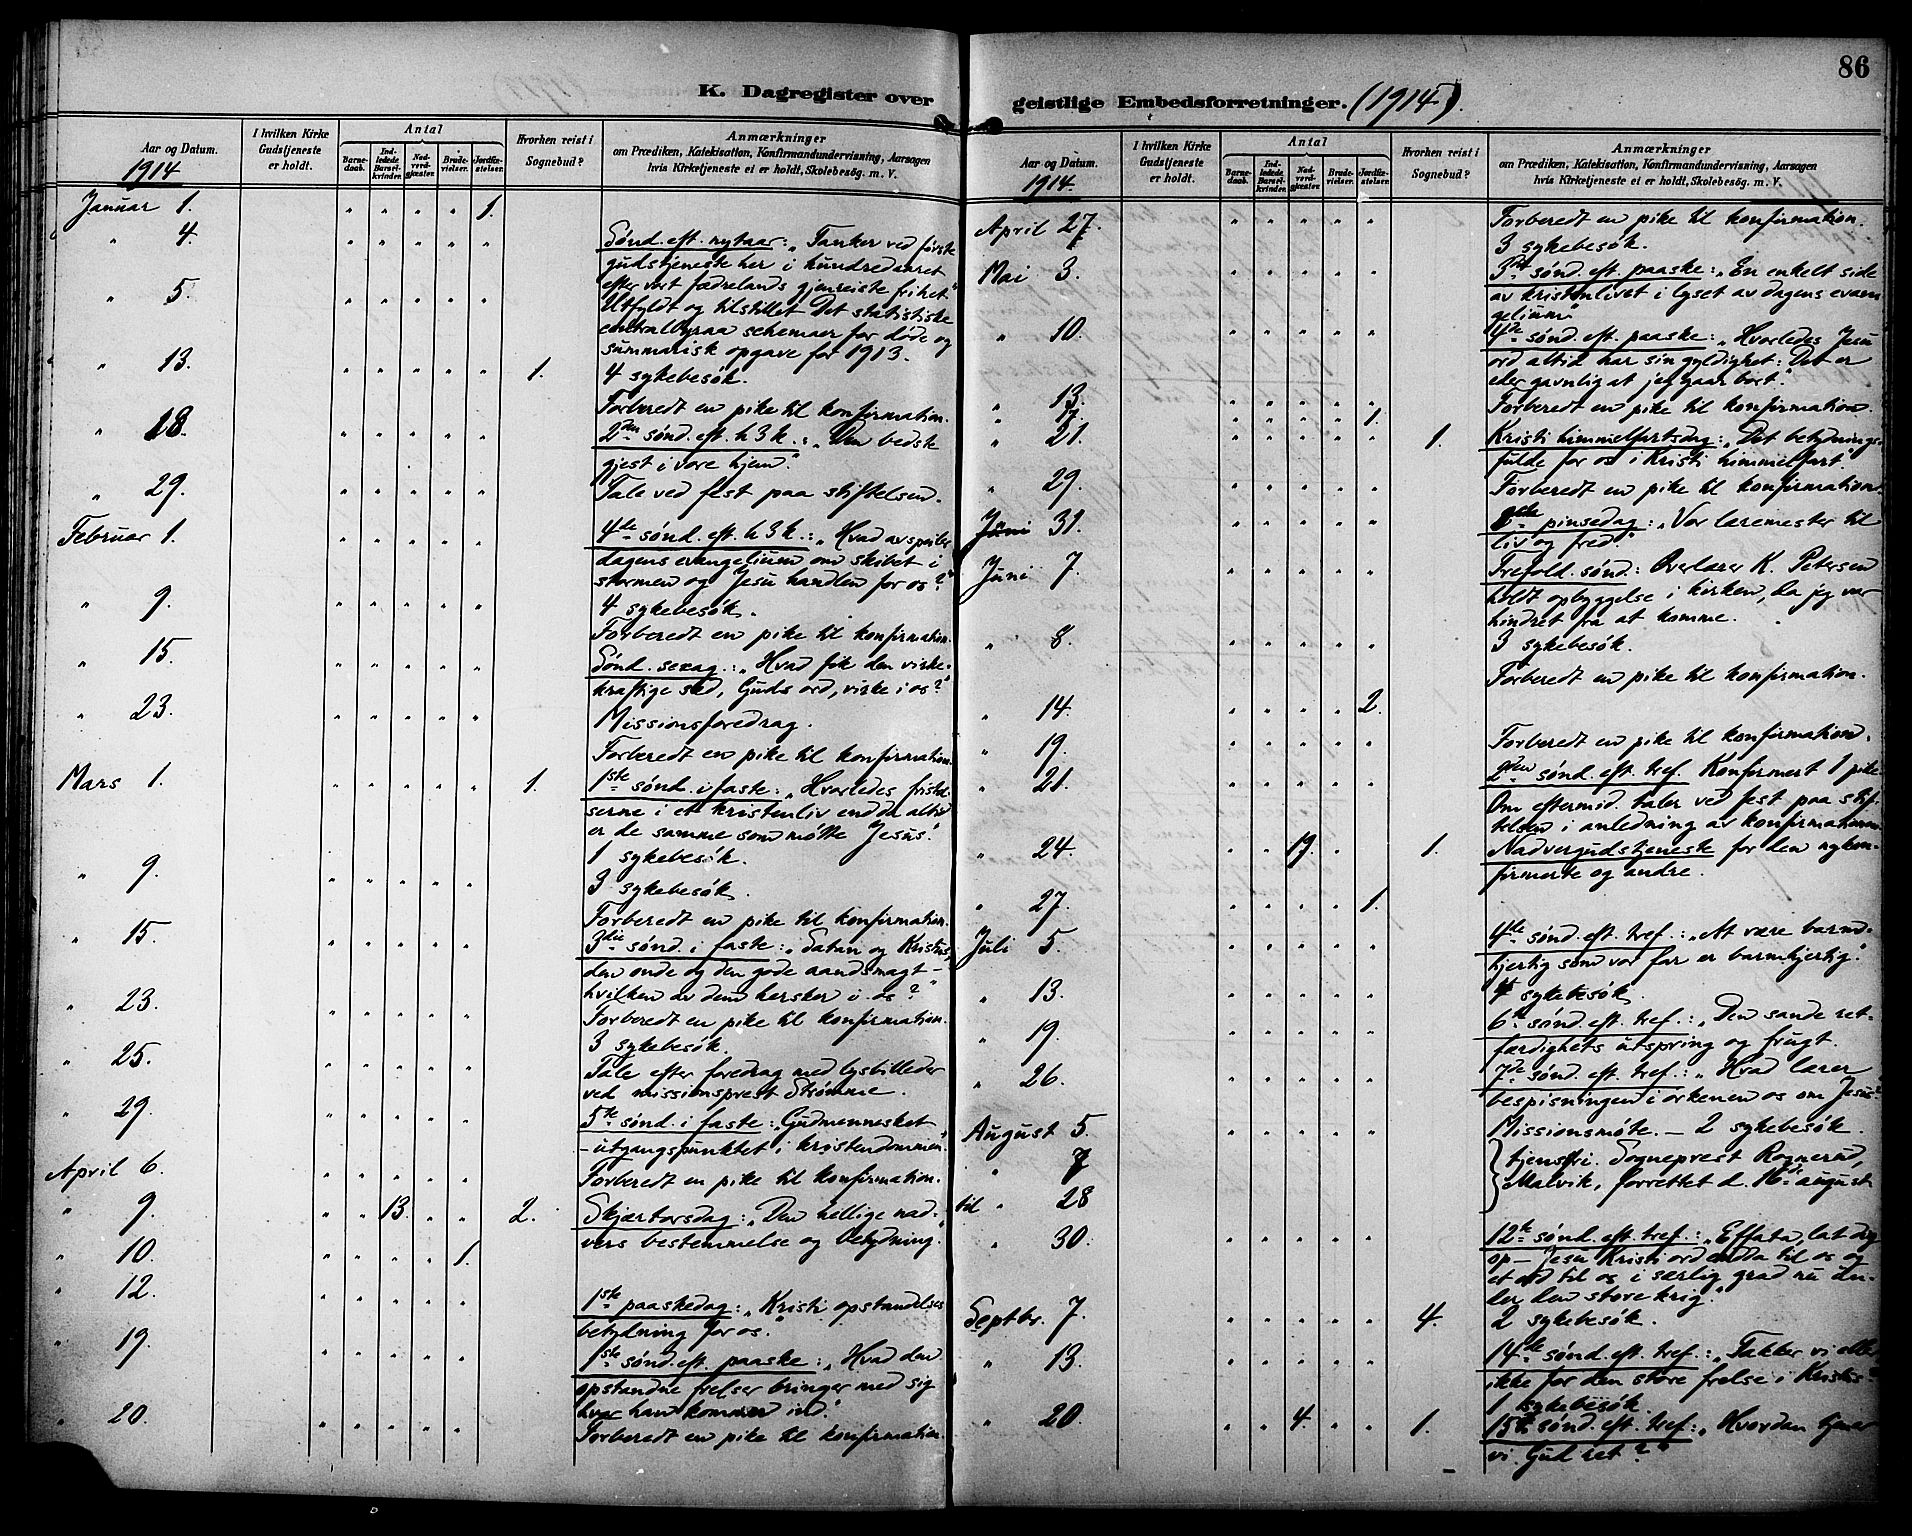 86
K. Dagregister over
Aar og Datum.
1914
I hvilken Kirke
Gudstjeneste
er holdt.
Antal
Barne-
daab.
Ind-
ledede
Barsel-
kvinder.
Nad-
verd-
gjæster.
Brude-
vielser.
Jordfæ-
stelser.
Hvorhen reist i
Sognebud?
Anmærkninger
om Prædiken, Katekisation, Konfirmandundervisning, Aarsagen
hvis Kirketjeneste ei er holdt, Skolebesøg. m. V.
Januar 1. " " " " 1.
" 4. " " " " " Sønd. eft. nytaar: „Tanker ved første
gudstjeneste her i hundredaaret
efter vort fædrelands gjenreiste frihet"
" 5. " " " " " Utfyldt og tilstillet Det statistiske
centralbyraa schemaer for døde og
summarisk opgave for 1913.
" 13. " " " " " 1. 4 sykebesøk.
Forberedt en pike til konfirmation.
" 18. " " " " " 2den sønd. eft. h 3 k.: „Den bedste
gjest i vore hjem."
" 29. " " " " " Tale ved fest paa stiftelsen.
Februar 1. " " " " " 4de sønd. eft. h 3 k.: „Hvad avspeiler
dagens evangelium om skibet i
stormen og Jesu handlen for os?"
" 9. " " " " " 4 sykebesøk.
Forberedt en pike til konfirmation.
" 15. " " " " " Sønd. sexag.: „Hvad fik den virke-
kraftige sæd, Guds ord, virke i os?"
" 23. " " " " " Missionsforedrag.
Forberedt en pike til konfirmation.
Mars 1. " " " " " 1. 1ste sønd. i faste: „Hvorledes fristel-
serne i et kristenliv endda altid
er de samme som møtte Jesus."
1 sykebesøk.
" 9. " " " " " 3 sykebesøk.
Forberedt en pike til konfirmation.
" 15. " " " " " 3die sønd. i faste: „Satan og Kristus,
den onde og den gode aandsmagt –
hvilken av dem hersker i os?"
" 23. " " " " " Forberedt en pike til konfirmation.
3 sykebesøk.
" 25. " " " " " Tale efter foredrag med lysbilleder
ved missionsprest Strømme.
" 29. " " " " " 5te sønd. i faste: „Gudmennesket
– utgangspunktet i kristendommen"
April 6. " " " " " Forberedt en pike til konfirmation.
" 9. " " 13. " " 2. Skjærtorsdag: „Den hellige nad-
vers bestemmelse og betydning."
" 10. " " " " 1.
" 12. " " " " " 1ste paaskedag: „Kristi opstandelses
betydning for os."
" 19. " " " " " 1ste sønd. eft. paaske: „Hvad den
opstandne frelser bringer med sig
hvor han kommer ind."
" 20. " " " " " Forberedt en pike til konfirmation.
geistlige Embedsforretninger. (1914).
Aar og Datum.
1914.
I hvilken Kirke
Gudstjeneste
er holdt.
Antal
Barne-
daab.
Ind-
ledede
Barsel-
kvinder.
Nad-
verd-
gjæster.
Brude-
vielser.
Jordfæ-
stelser.
Hvorhen reist i
Sognebud?
Anmærkninger
om Prædiken, Katekisation, Konfirmandundervisning, Aarsagen
hvis Kirketjeneste ei er holdt, Skolebesøg, m. V.
April 27. " " " " " Forberedt en pike til konfirmation.
3 sykebesøk.
Mai 3. " " " " " 3die sønd. eft. paaske: „En enkelt side
av kristenlivet i lyset av dagens evan-
gelium"
" 10. " " " " " 4de sønd. eft. paaske: „Hvorledes Jesu
ord altid har sin gyldighet: Det er
eder gavnlig at jeg gaar bort."
" 13. " " " " " Forberedt en pike til konfirmation.
" " " " " 1.
" 21. " " " " " 1. Kristi himmelfartsdag: „Det betydnings-
fulde for os i Kristi himmelfart."
" 29. " " " " " Forberedt en pike til konfirmation.
Juni 31. " " " " " pinsedag: „Vor læremester til
liv og fred."
Juni 7. " " " " " Trefold. sønd: Overlærer K. Petersen
holdt opbyggelse i kirken, da jeg var
hindret fra at komme.
" 8. " " " " " 3 sykebesøk.
Forberedt en pike til konfirmation.
" 14. " " " " 2.
" 19. " " " " " Forberedt en pike til konfirmation.
" 21. " " " " " 2den sønd. eft. tref. Konfirmert 1 pike.
Om eftermid. taler ved fest paa stif-
telsen i anledning av konfirmationen.
" 24. " " 19. " " 1. Nadvergudstjeneste for den nykon-
firmerte og andre.
" 27. " " " " 1.
Juli 5. " " " " " 4de sønd. eft. tref.: „At være barm-
hjertig som vor far er barmhjertig."
" 13. " " " " " 4 sykebesøk.
" 19. " " " " " 6te sønd. eft. tref.: „Den sande ret-
færdighets utspring og frugt.
" 26. " " " " " 7de sønd. eft. tref.: „Hvad lærer
bespisningen i ørkenen os om Jesus?
August 5. " " " " " Missionsmøte. – 2 sykebesøk.
" 7 tjenstfri. Sogneprest Rognerud,
til " 28 Malvik, forrettet d. 16de august
" 30. " " " " " 12te sønd. eft. tref.: „Effata, lat dig
op – Jesu Kristi ord endda til os og
et ord til os i særlig grad nu un-
der den store krig."
Septbr. 7. " " " " " 4. 2 sykebesøk.
" 13. " " " " " 14de sønd. eft. tref.: „Takker vi eller
ikke for den store frelse i Kristus?
1 sykebesøk.
" 20. " " 4. " " 1. 15de sønd. eft. tref.: „Hvordan tjener
vi Gud ret?"